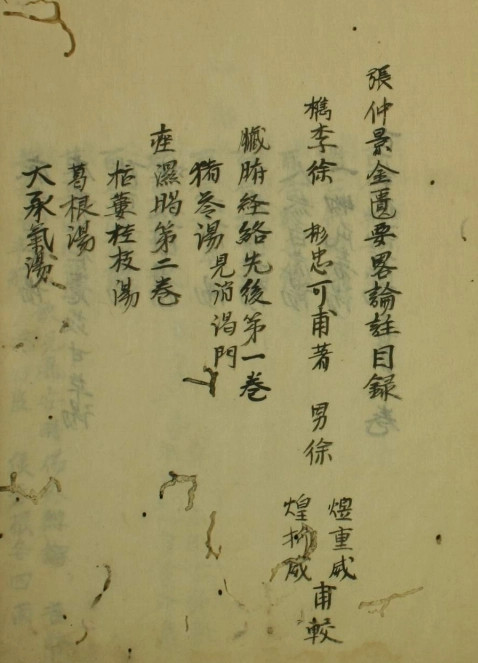 張仲景金匱要畧論註目録
檇李徐　彬忠可甫著　男徐
煜重威
煌掀威
甫較
臟腑經絡先後第一卷
猪苓湯見消渴門
痙濕暍第二卷
栝蔞桂枝湯
葛根湯
大承氣湯